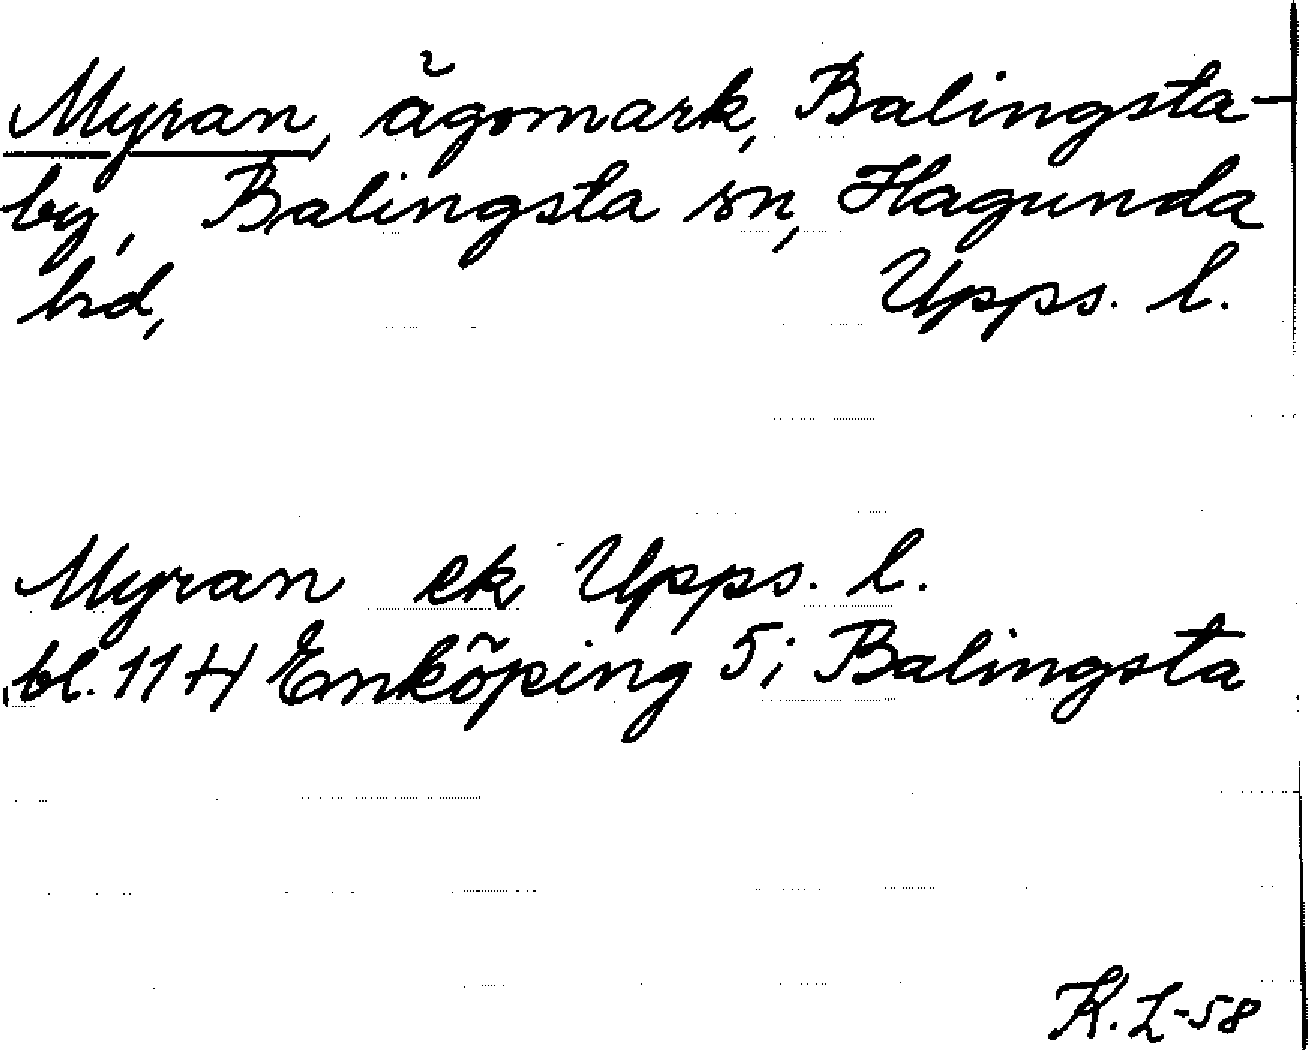 Myran, ägomark, Balingsta-
by, Balingsta sn, Hagunda
hd, Upps. l.
Myran ek Upps. l.
bl. 11 H Enköping 5i Balingsta
K. L-58